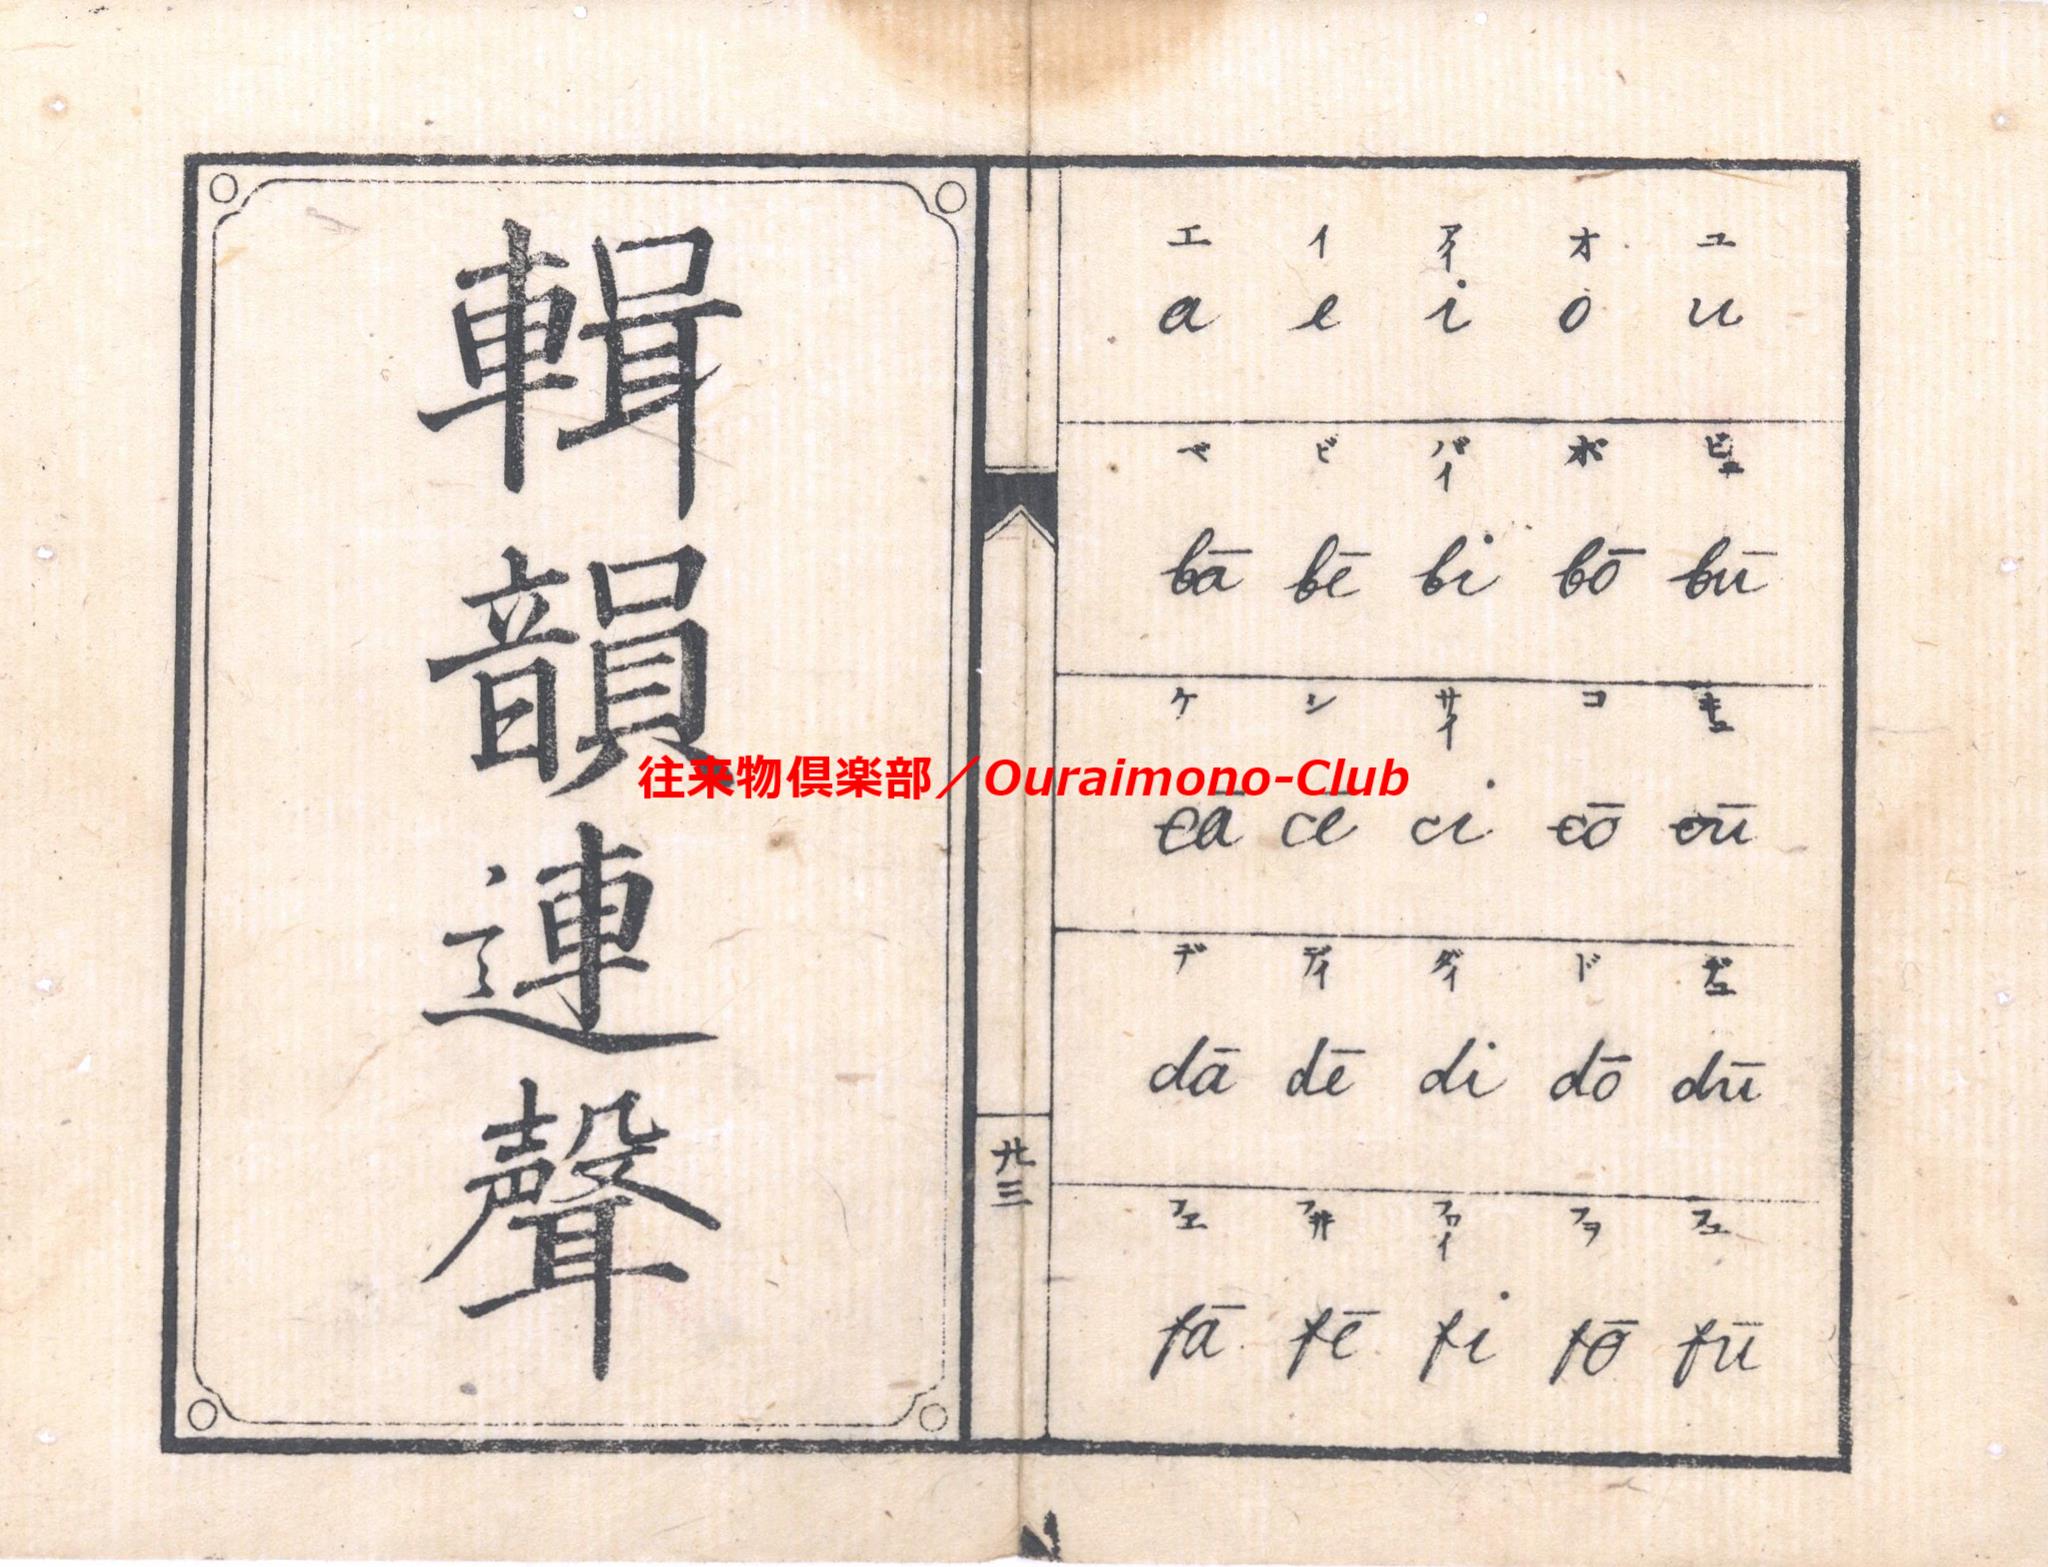 輯韻連聲
往来物倶楽部／Ouraimono-Club
廿三
エ イ アイ オ ユ
a e i o u
ベ ビ バイ ボ ビュ
bā bē bi bō bū
ケ シ サイ コ キュ
cā cē ci cō cū
デ ディ ダイ ド ヂュ
dā dē di dō dū
フエ フ井 フワイ フヲ フユ
fā fē fi fō fū